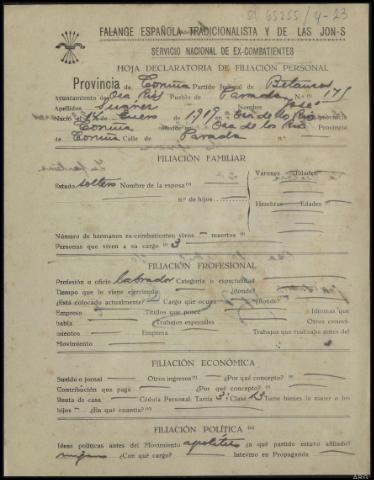 65255/4-23
FALANGE ESPAÑOLA TRADICIONALISTA Y DE LAS JON-S
SERVICIO NACIONAL DE EX-COMBATIENTES
HOJA DECLARATORIA DE FILIACIÓN PERSONAL
Provincia de Coruña Partido Judicial de Betanzos
Ayuntamiento de Oza Ríos Pueblo de Parada N.º 175
Apellidos Nombre José
Nació el 14 Enero de 1919 en Oza de los Ríos
Coruña Oza de los Ríos Provincia
Coruña Calle de Parada
FILIACIÓN FAMILIAR
Estado soltero Nombre de la esposa
n.º de hijos
Varones Edades
Hembras Edades
Número de hermanos ex-combatientes vivos — muertos
Personas que viven a su cargo 3
FILIACIÓN PROFESIONAL
Profesión u oficio labrador Categoría o especialidad
Tiempo que lo viene ejerciendo (dónde)
¿Está colocado actualmente? Cargo que ocupa (dónde)
Empresa Títulos que posee Idiomas que
habla Trabajos especiales Otros conoci-
mientos Empresa Trabajos que realizaba antes del
Movimiento
FILIACIÓN ECONÓMICA
Sueldo o jornal — Otros ingresos — ¿Por qué concepto?
Contribución que paga ¿Por qué concepto?
Renta de casa — Cédula Personal: Tarifa 3ª Clase 13 Tiene bienes la mujer o los
hijos — ¿En qué cuantía?
FILIACIÓN POLÍTICA
Ideas políticas antes del Movimiento apolítico ¿a qué partido estuvo afiliado?
ninguno ¿Con qué cargo? Intervino en Propaganda